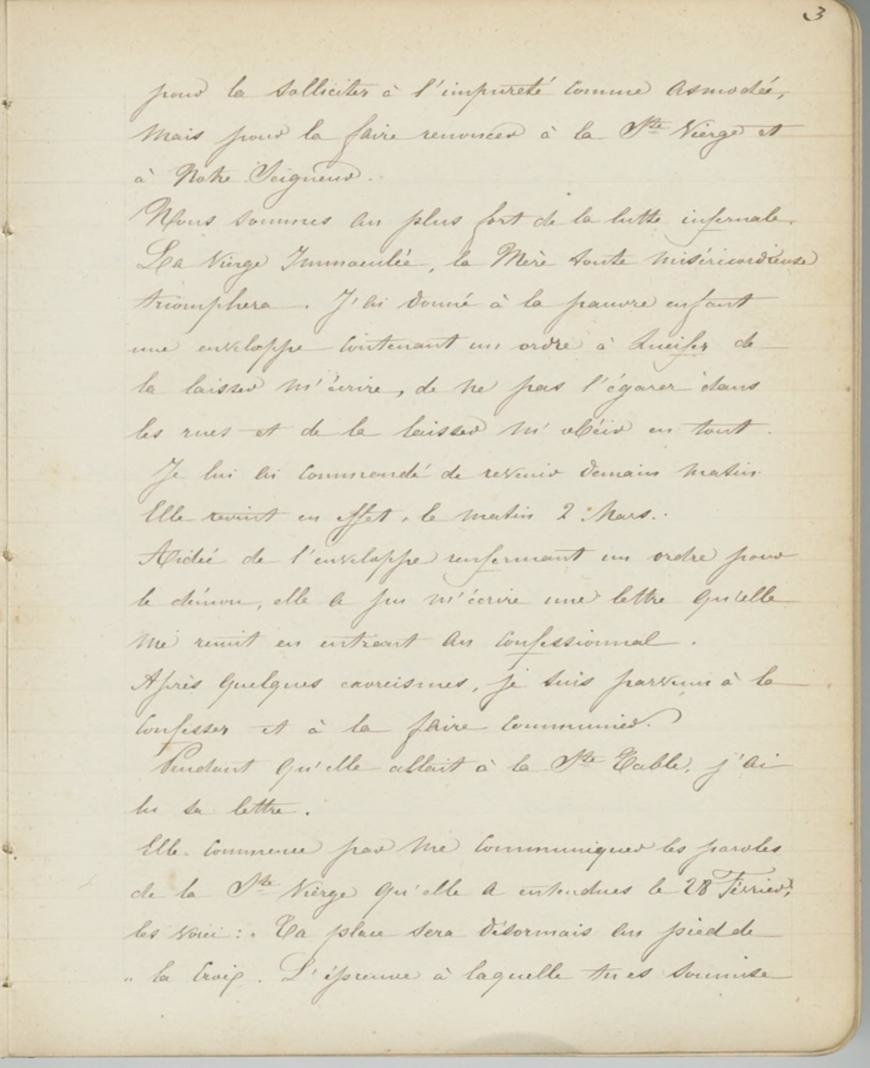 3
pour la solliciter à l'impureté comme Asmodée,
mais pour la faire renoncer à la Ste Vierge et
à Notre Seigneur.
Nous sommes au plus fort de la lutte infernale.
La Vierge Immaculée, la Mère toute miséricordieuse
triomphera. J'ai donné à la pauvre enfant
une enveloppe contenant un ordre à Lucifer de
la laisser m'écrire, de ne pas l'égarer dans
les rues et de la laisser m'obéir en tout.
Je lui ai commandé de revenir demain matin
Elle revint en effet, le matin 2 Mars.
Aidée de l'enveloppe renfermant un ordre pour
le démon, elle a pu m'écrire une lettre qu'elle
me remit en entrant au confessionnal.
Après quelques exorcismes, je suis parvenu à la
confesser et à la faire communier.
Pendant qu'elle allait à la Ste Table, j'ai
lu sa lettre.
Elle commence par me communiquer les paroles
de la Ste Vierge qu'elle a entendues le 28 Février,
les voici : " Ta place sera désormais au pied de
" la Croix. L'épreuve à laquelle tu es soumise